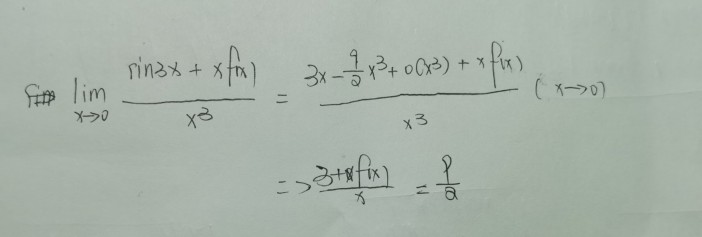 lim x→0 (sin3x + xf(x))/x³ = (3x - 9/2 x³ + o(x³) + xf(x))/x³ (x→0)
=> (3+f(x))/x = 9/2